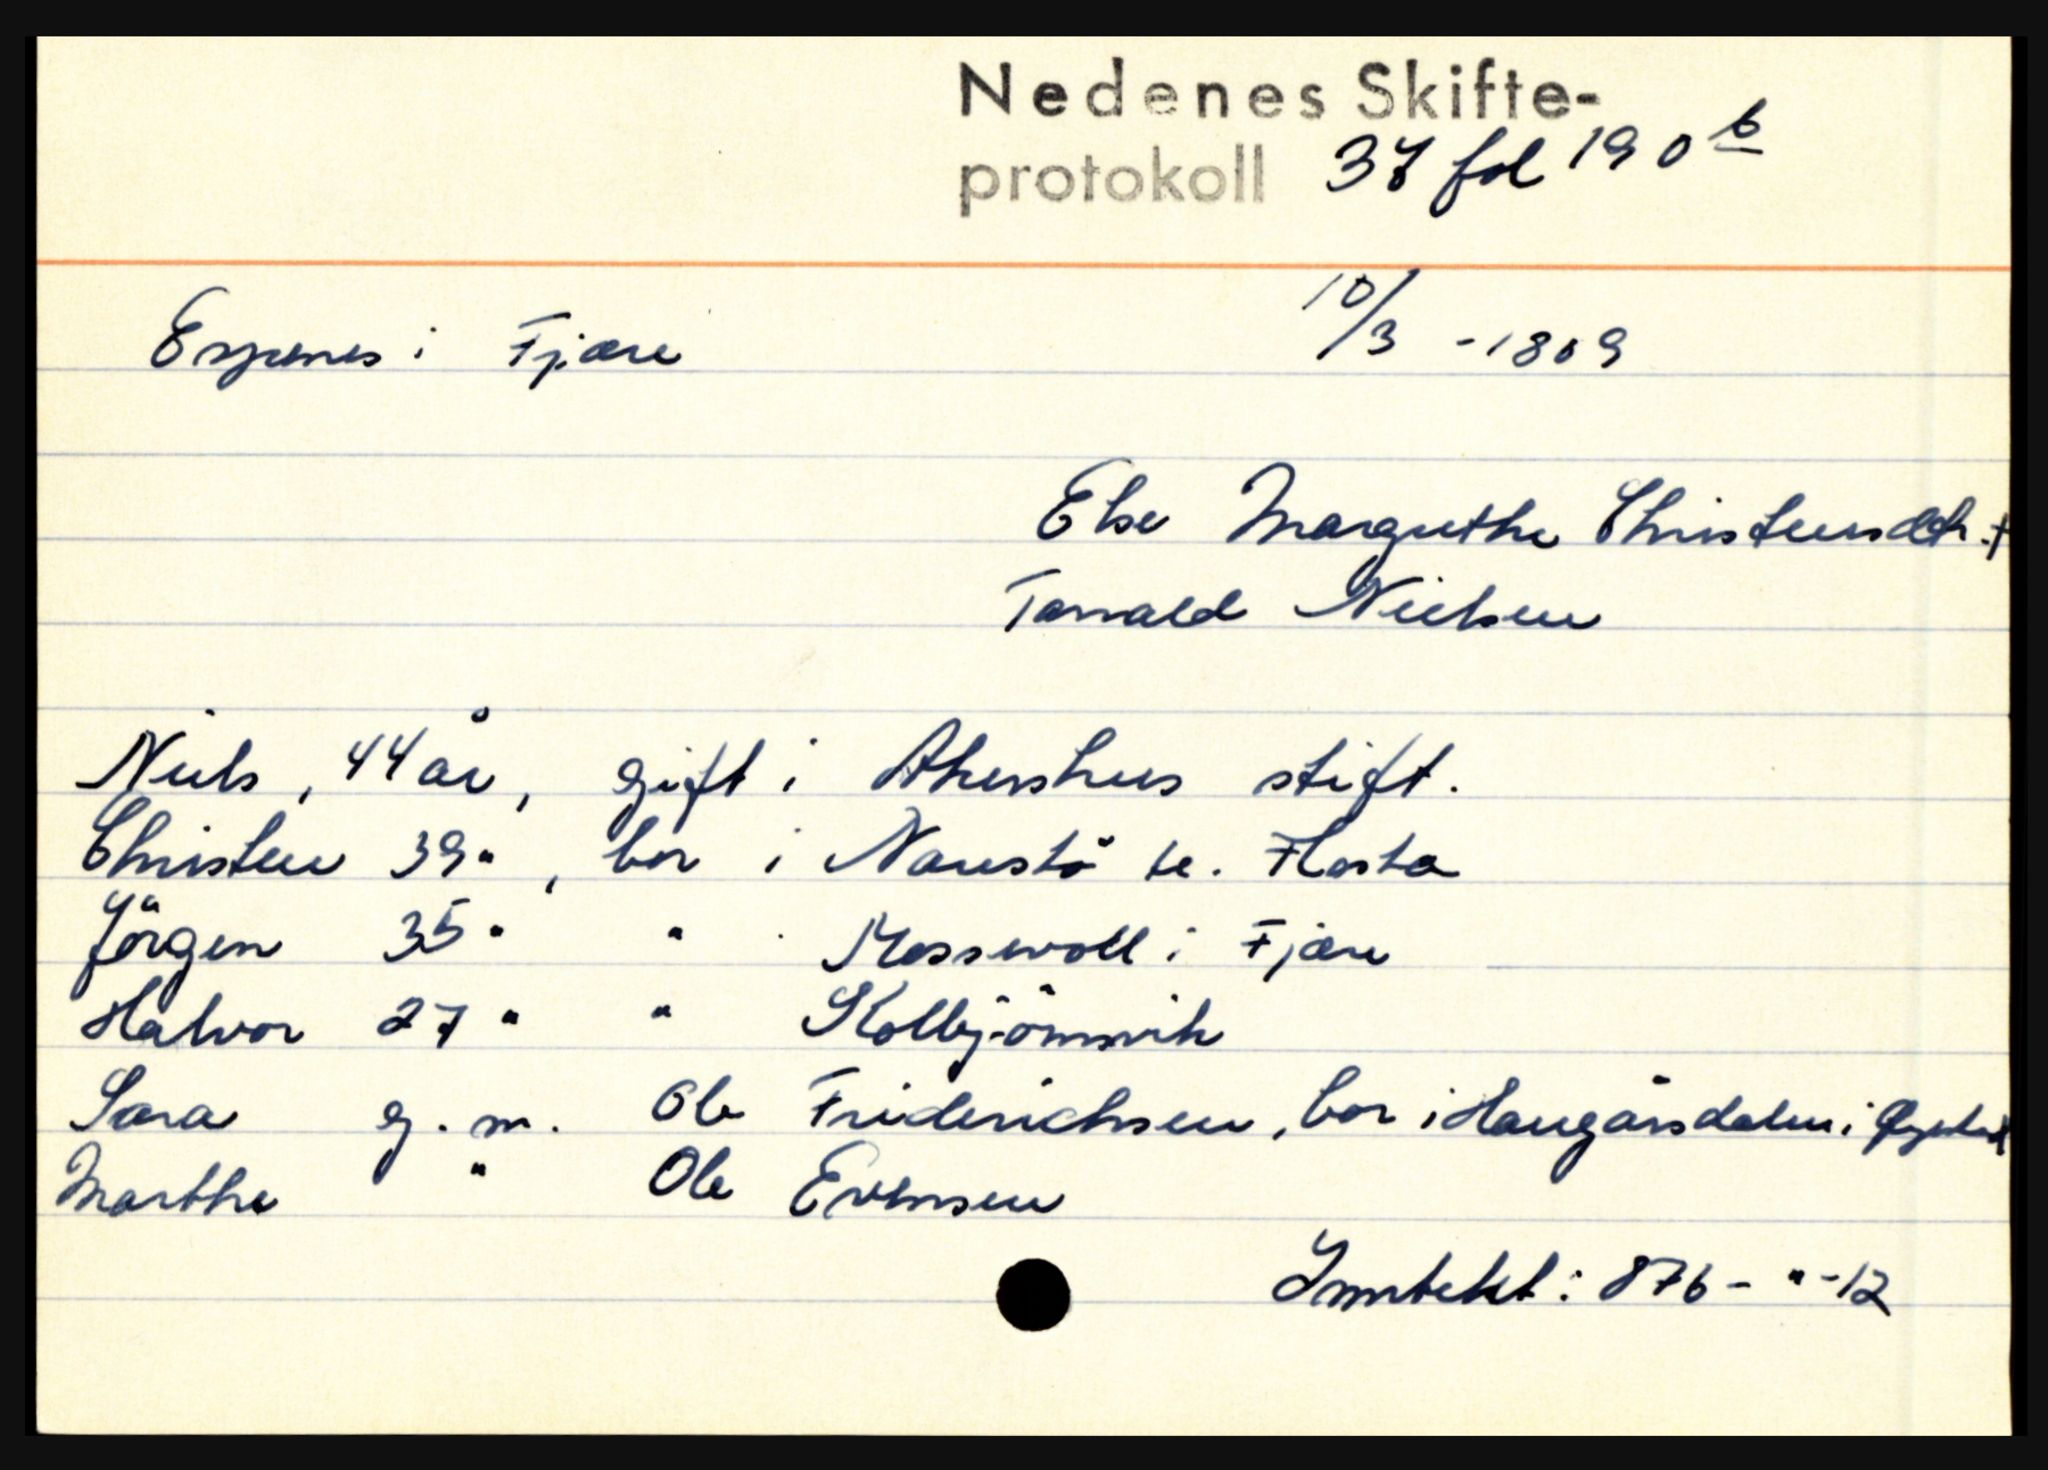 Nedenes Skifte-
protokoll 37 fol 190 b
Espenes i Fjære
10/3 - 1809
Else Margrethe Christensdtr. †
Tarrald Nielsen
Niels, 44 år, gift i Akershus stift.
Christen 39 ", bor i Naustö te. Flosta
Jörgen 35 " " Messewoll i Fjære
Halvor 27 " " Kolbjörnsvik
Sara g. m. Ole Friderichsen, bor i Haugårsdalen i Øyestad
Marthe " Ole Evensen
Inntekt: 876 - " - 12